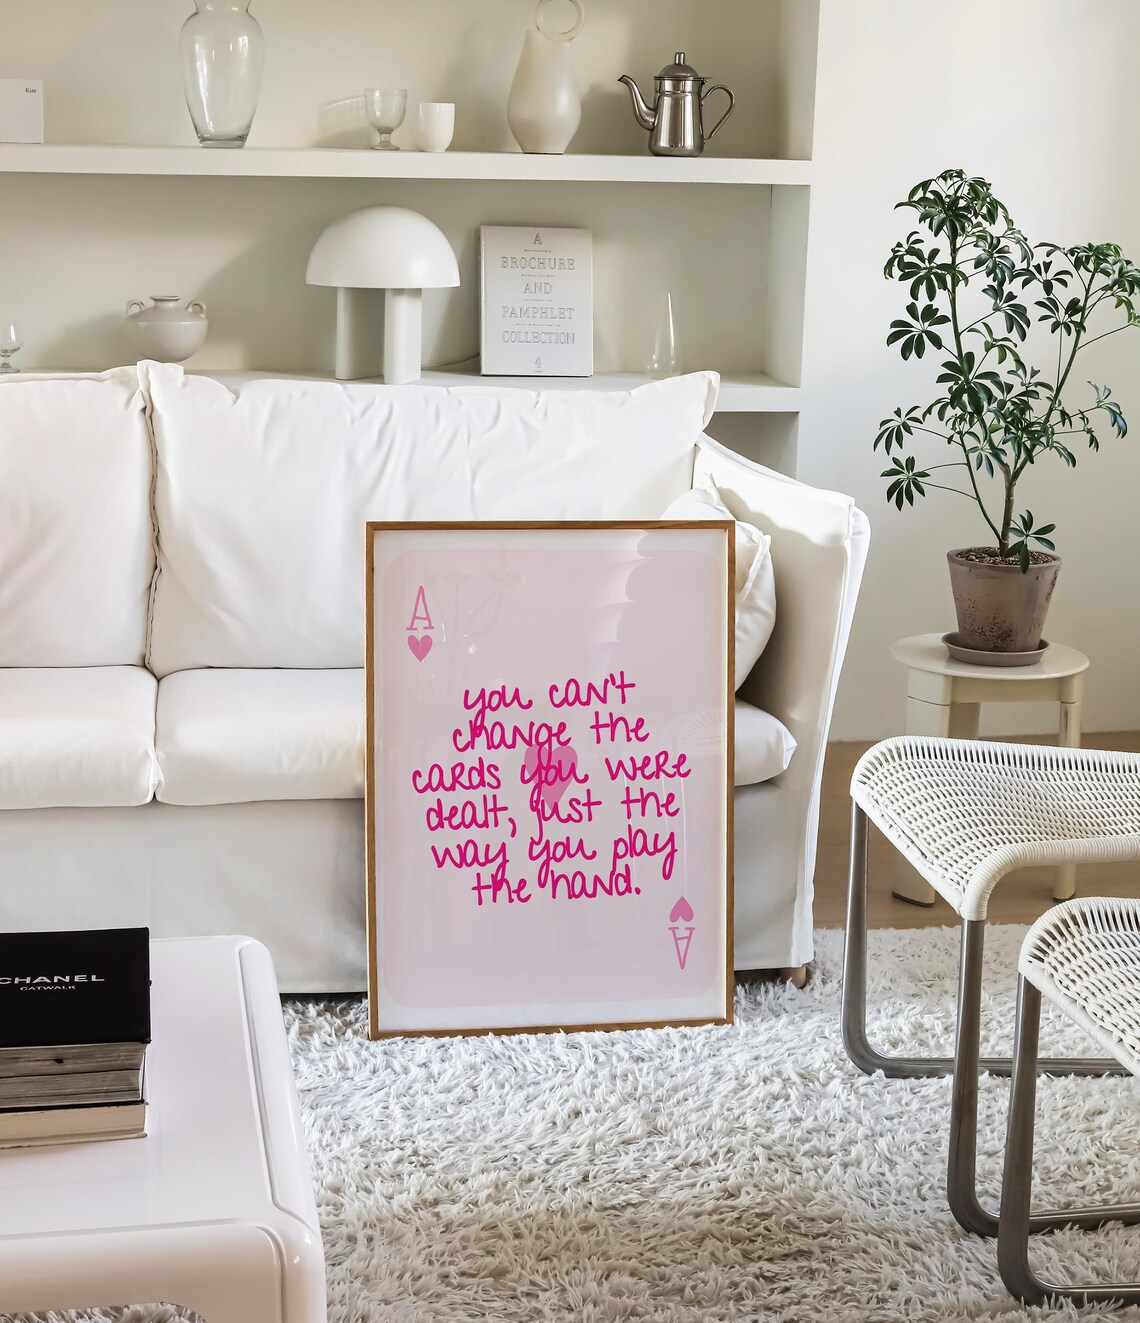 Kim
A
BROCHURE
AND
PAMPHLET
COLLECTION
4
A
you can't
change the
cards you were
dealt, just the
way you play
the hand.
A
CHANEL
CATWALK